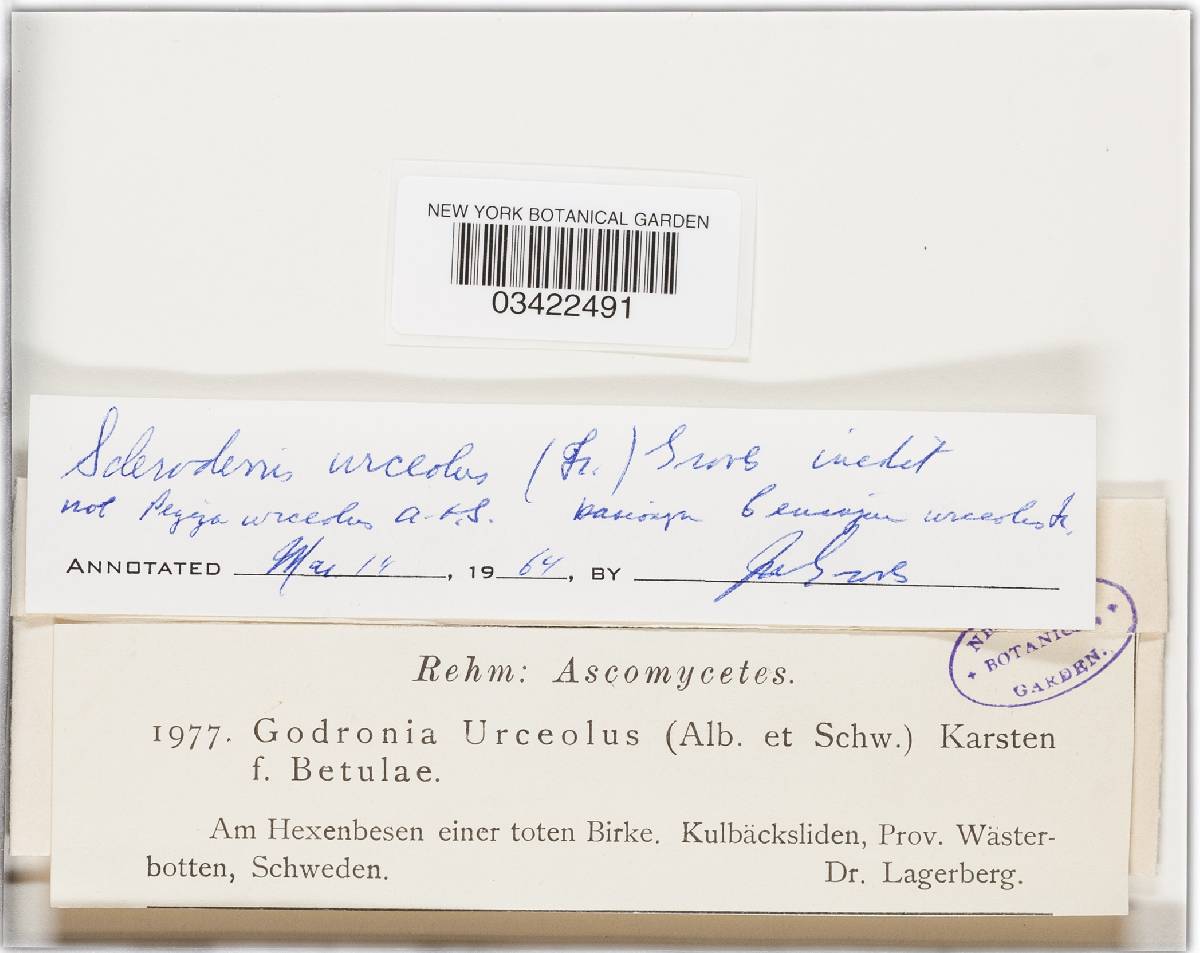 NEW YORK BOTANICAL GARDEN
03422491
Scleroderris urceolus (Fr.) Groves inedit
not Peziza urceolus A.+S. basionym Cenangium urceolus Fr.
ANNOTATED Mar 14, 1964, BY Groves
BOTANIC
GARDEN.
Rehm: Ascomycetes.
1977. Godronia Urceolus (Alb. et Schw.) Karsten
f. Betulae.
Am Hexenbesen einer toten Birke. Kulbäcksliden, Prov. Wäster-
botten, Schweden. Dr. Lagerberg.